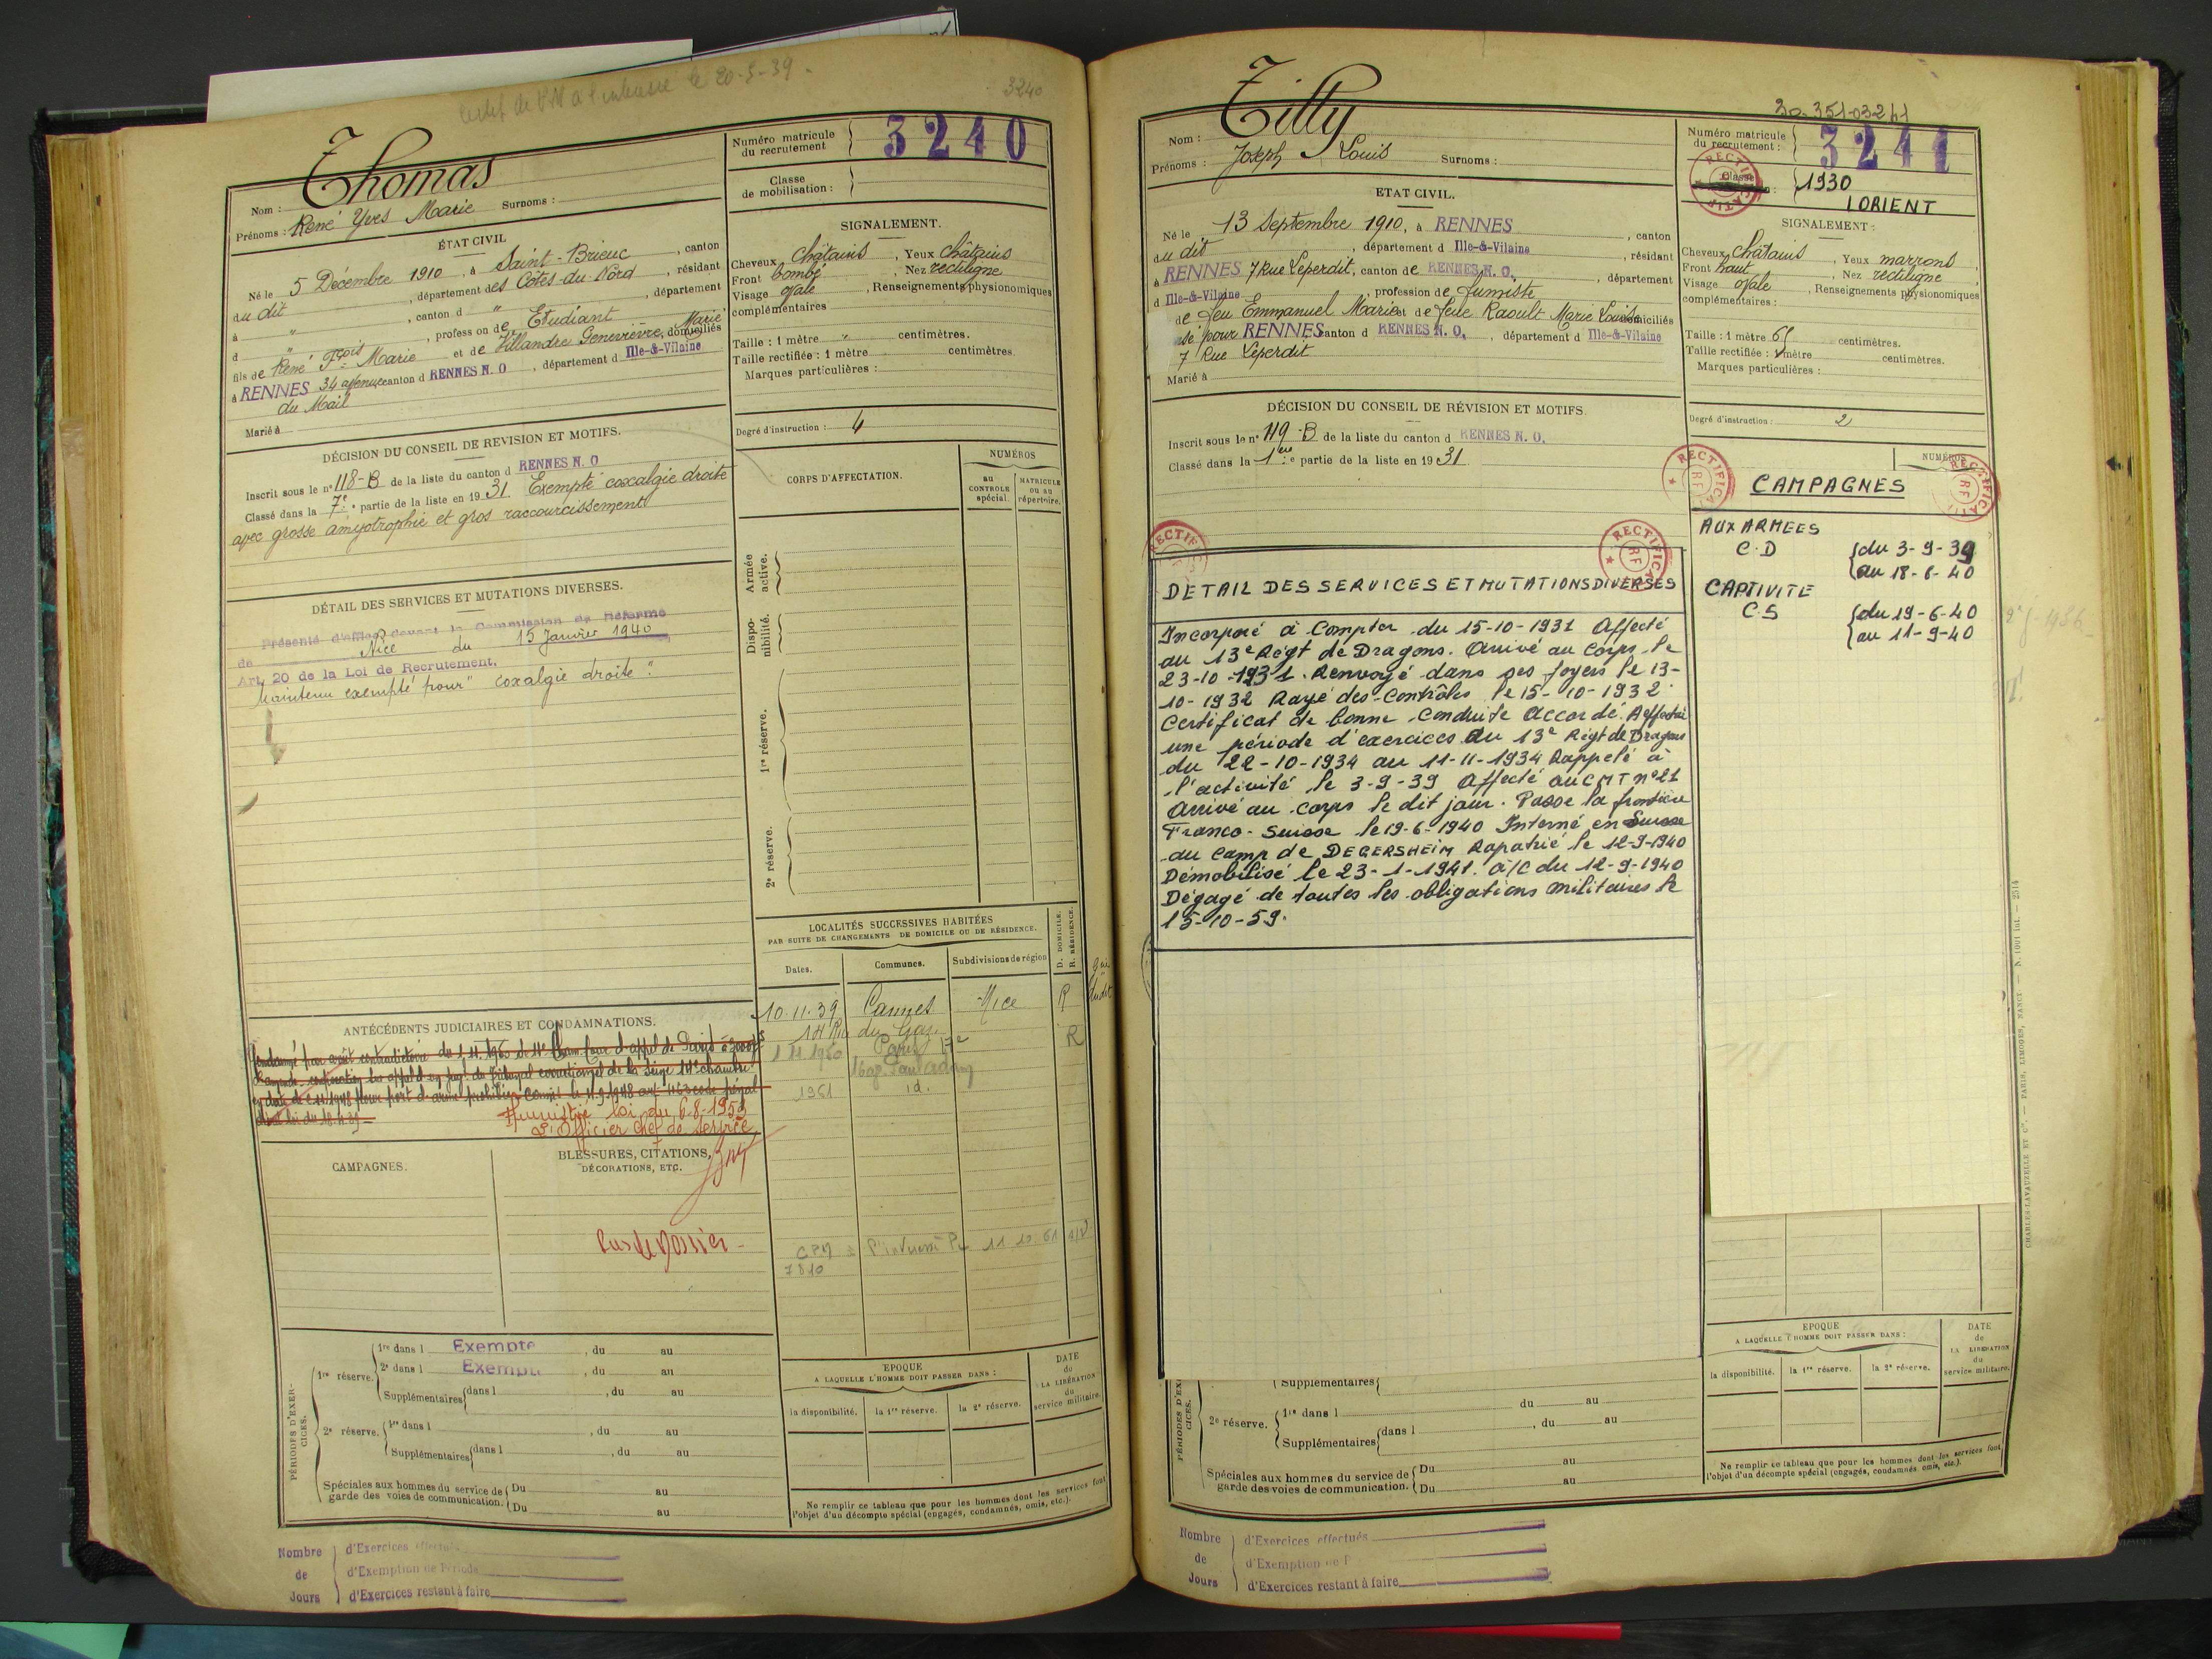 Certif de PM à l'intéressé le 20-5-39.
3240
Thomas
Nom :
Prénoms : René Yves Marie Surnoms :
Numéro matricule du recrutement 3240
Classe de mobilisation :
ÉTAT CIVIL
Né le 5 Décembre 1910, à Saint-Brieuc, canton
du dit, département des Côtes-du-Nord, résidant
à ", canton d ", département
d ", profession de Etudiant
fils de René Fçois Marie et de Villandre Geneviève, Marie domiciliés
à RENNES 34 avenue canton d RENNES N. O, département d Ille-&-Vilaine
du Mail
Marié à
SIGNALEMENT.
Cheveux châtains, Yeux châtains
Front bombé, Nez rectiligne
Visage ovale, Renseignements physionomiques
complémentaires
Taille : 1 mètre " centimètres.
Taille rectifiée : 1 mètre centimètres.
Marques particulières :
Degré d'instruction : 4
DÉCISION DU CONSEIL DE REVISION ET MOTIFS.
Inscrit sous le n° 118-B de la liste du canton d RENNES N. O
Classé dans la 7e partie de la liste en 1931. Exempté coxalgie droite
avec grosse amyotrophie et gros raccourcissement
DÉTAIL DES SERVICES ET MUTATIONS DIVERSES.
Présenté d'office devant la Commission de Réforme
de Nice du 15 Janvier 1940
Art. 20 de la Loi de Recrutement.
Maintenu exempté pour "coxalgie droite".
CORPS D'AFFECTATION.
NUMÉROS
au CONTROLE spécial.
MATRICULE ou au répertoire.
Armée active.
Disponibilité.
1re réserve.
2e réserve.
LOCALITÉS SUCCESSIVES HABITÉES
PAR SUITE DE CHANGEMENTS DE DOMICILE OU DE RÉSIDENCE.
Dates.
Communes.
Subdivisions de région
D. DOMICILE.
R. RÉSIDENCE.
10.11.39 Cannes Nice R
14 Rue du Gaz
1950 Paris 17e R
16 ap. Paul Adam
1961 id.
ANTÉCÉDENTS JUDICIAIRES ET CONDAMNATIONS.
Amnistié loi du 6-8-1953
L'Officier Chef de service
CAMPAGNES.
BLESSURES, CITATIONS,
DÉCORATIONS, ETC.
Pas de dossier -
CPM à l'intéressé le 11 10 61
7810
PÉRIODES D'EXERCICES.
1re réserve. 1re dans l Exempté, du au
2e dans l Exempté, du au
Supplémentaires dans l, du au
2e réserve. 1re dans l, du au
Supplémentaires dans l, du au
Spéciales aux hommes du service de garde des voies de communication. Du au
Du au
EPOQUE
A LAQUELLE L'HOMME DOIT PASSER DANS :
la disponibilité. la 1re réserve. la 2e réserve.
DATE de LA LIBÉRATION du service militaire.
Ne remplir ce tableau que pour les hommes dont les services font
l'objet d'un décompte spécial (engagés, condamnés, omis, etc.).
Nombre de Jours
d'Exercices effectués
d'Exemption de Période
d'Exercices restant à faire
Tilly
Nom :
Prénoms : Joseph Louis Surnoms :
30.351.03241
Numéro matricule du recrutement : 3241
Classe 1930
LORIENT
RECTIFICATIF
ETAT CIVIL.
Né le 13 Septembre 1910, à RENNES, canton
du dit, département d Ille-&-Vilaine, résidant
à RENNES 7 Rue Leperdit, canton de RENNES N. O., département
d Ille-&-Vilaine, profession de fumiste
de feu Emmanuel Marie et de feue Raoult Marie Louise domiciliés
pour RENNES canton d RENNES N. O., département d Ille-&-Vilaine
7 Rue Leperdit
Marié à
SIGNALEMENT :
Cheveux châtains, Yeux marrons
Front haut, Nez rectiligne
Visage ovale, Renseignements physionomiques
complémentaires :
Taille : 1 mètre 65 centimètres.
Taille rectifiée : 1 mètre centimètres.
Marques particulières :
Degré d'instruction : 2
DÉCISION DU CONSEIL DE RÉVISION ET MOTIFS.
Inscrit sous le n° 119-B de la liste du canton d RENNES N. O.
Classé dans la 1ère partie de la liste en 1931
RECTIFICATIF RF
NUMÉROS
CAMPAGNES
AUX ARMEES
C.D du 3-9-39
au 18-6-40
CAPTIVITE
CS du 19-6-40
au 11-9-40
DETAIL DES SERVICES ET MUTATIONS DIVERSES
Incorporé à Compter du 15-10-1931 Affecté
au 13e Régt de Dragons. Arrivé au Corps le
23-10-1931. Renvoyé dans ses foyers le 13-
10-1932 Rayé des Contrôles le 15-10-1932
Certificat de bonne conduite accordé. A effectué
une période d'exercices au 13e Régt de Dragons
du 22-10-1934 au 11-11-1934 Rappelé à
l'activité le 3-9-39 Affecté au CMT n°21
Arrivé au corps le dit jour. Passe la frontière
Franco-Suisse le 19-6-1940 Interné en Suisse
au Camp de DEGERSHEIM Rapatrié le 12-9-1940
Démobilisé le 23-1-1941. à/c du 12-9-1940
Dégagé de toutes les obligations militaires le
15-10-59.
CHARLES-LAVAUZELLE ET Cie. — PARIS, LIMOGES, NANCY
PÉRIODES D'EXERCICES.
Supplémentaires
2e réserve. 1re dans l du au
Supplémentaires dans l, du au
Spéciales aux hommes du service de garde des voies de communication. Du au
Du au
EPOQUE
A LAQUELLE L'HOMME DOIT PASSER DANS :
la disponibilité. la 1re réserve. la 2e réserve.
DATE de LA LIBÉRATION du service militaire.
Ne remplir ce tableau que pour les hommes dont les services font
l'objet d'un décompte spécial (engagés, condamnés, omis, etc.).
Nombre de Jours
d'Exercices effectués
d'Exemption de P
d'Exercices restant à faire